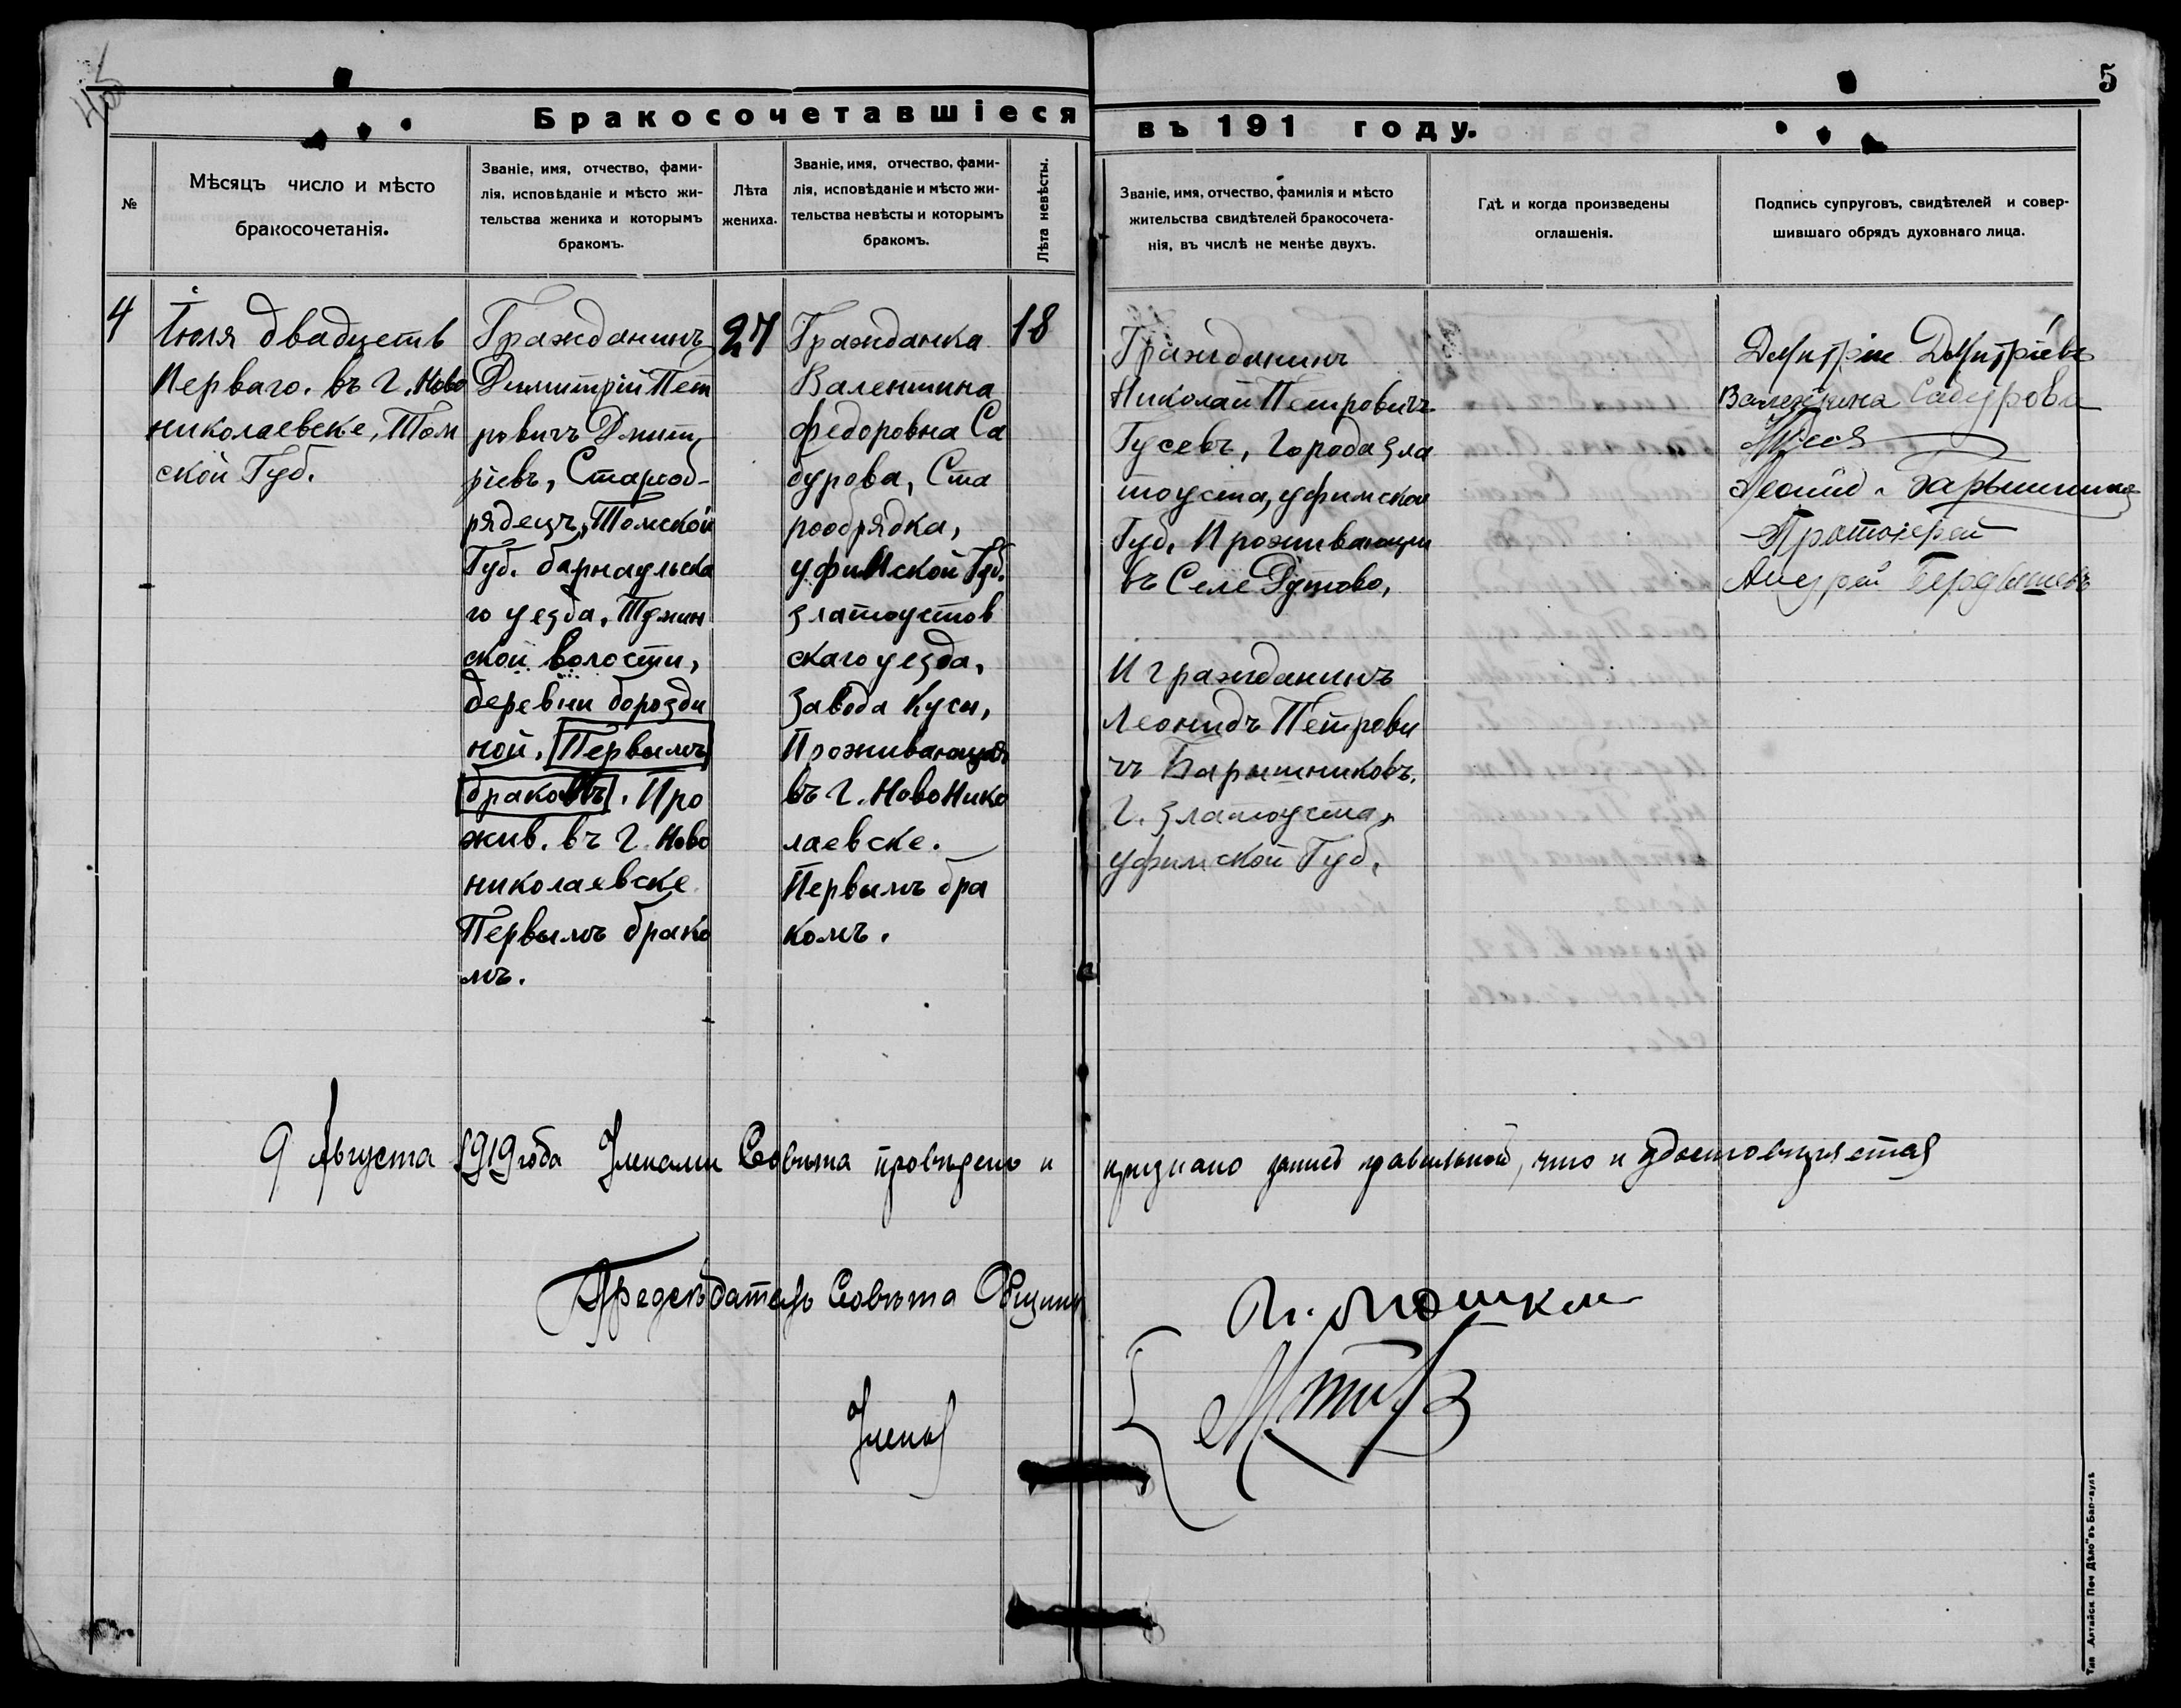 5
Бракосочетавшіеся въ 191 году.
№
Мѣсяцъ число и мѣсто
бракосочетанія.
Званіе, имя, отчество, фами-
лія, исповѣданіе и мѣсто жи-
тельства жениха и которымъ
бракомъ.
Лѣта
жениха.
Званіе, имя, отчество, фами-
лія, исповѣданіе и мѣсто жи-
тельства невѣсты и которымъ
бракомъ.
Лѣта невѣсты.
Званіе, имя, отчество, фамилія и мѣсто
жительства свидѣтелей бракосочета-
нія, въ числѣ не менѣе двухъ.
Гдѣ и когда произведены
оглашенія.
Подпись супруговъ, свидѣтелей и совер-
шившаго обрядъ духовнаго лица.
4
Іюля двадцеть
Перваго. въ г. Ново
николаевске, Том
ской Губ.
Гражданинъ
Димитрій Пет
ровичъ Дмит
ріевъ, Старооб-
рядецъ, Томской
Губ. барнаульска
го уезда,
ской волости,
деревни борозди
ной. Первымъ
бракомъ. Про
жив. въ г. Ново
николаевске
Первымъ брако
мъ.
27
Гражданка
Валентина
федоровна Са
бурова, Ста
рообрядка,
уфимской Губ.
златоустов
скаго уезда,
завода Кусы,
Проживающая
въ г. НовоНико
лаевске.
Первымъ бра
комъ.
18
Гражданинъ
Николай Петровичъ
Гусевъ, города зла
тоуста, уфимской
Губ. Проживающи
въ Селе
И гражданинъ
Леонидъ Петрови
чъ Барышниковъ.
г. златоуста,
уфимской Губ.
Дмитріи Дмитріевъ
Валентина Сабурова
Леонид. Барышник
Протоіерей
Андрей Бердышевъ
9 Августа 1919 года Членами Совѣта провѣрено и признано запись правильной, что и удостовѣряется
Предсѣдатель Совѣта Общины
Члены
Тип Алтайск Печ Дѣло" въ Барнаулѣ